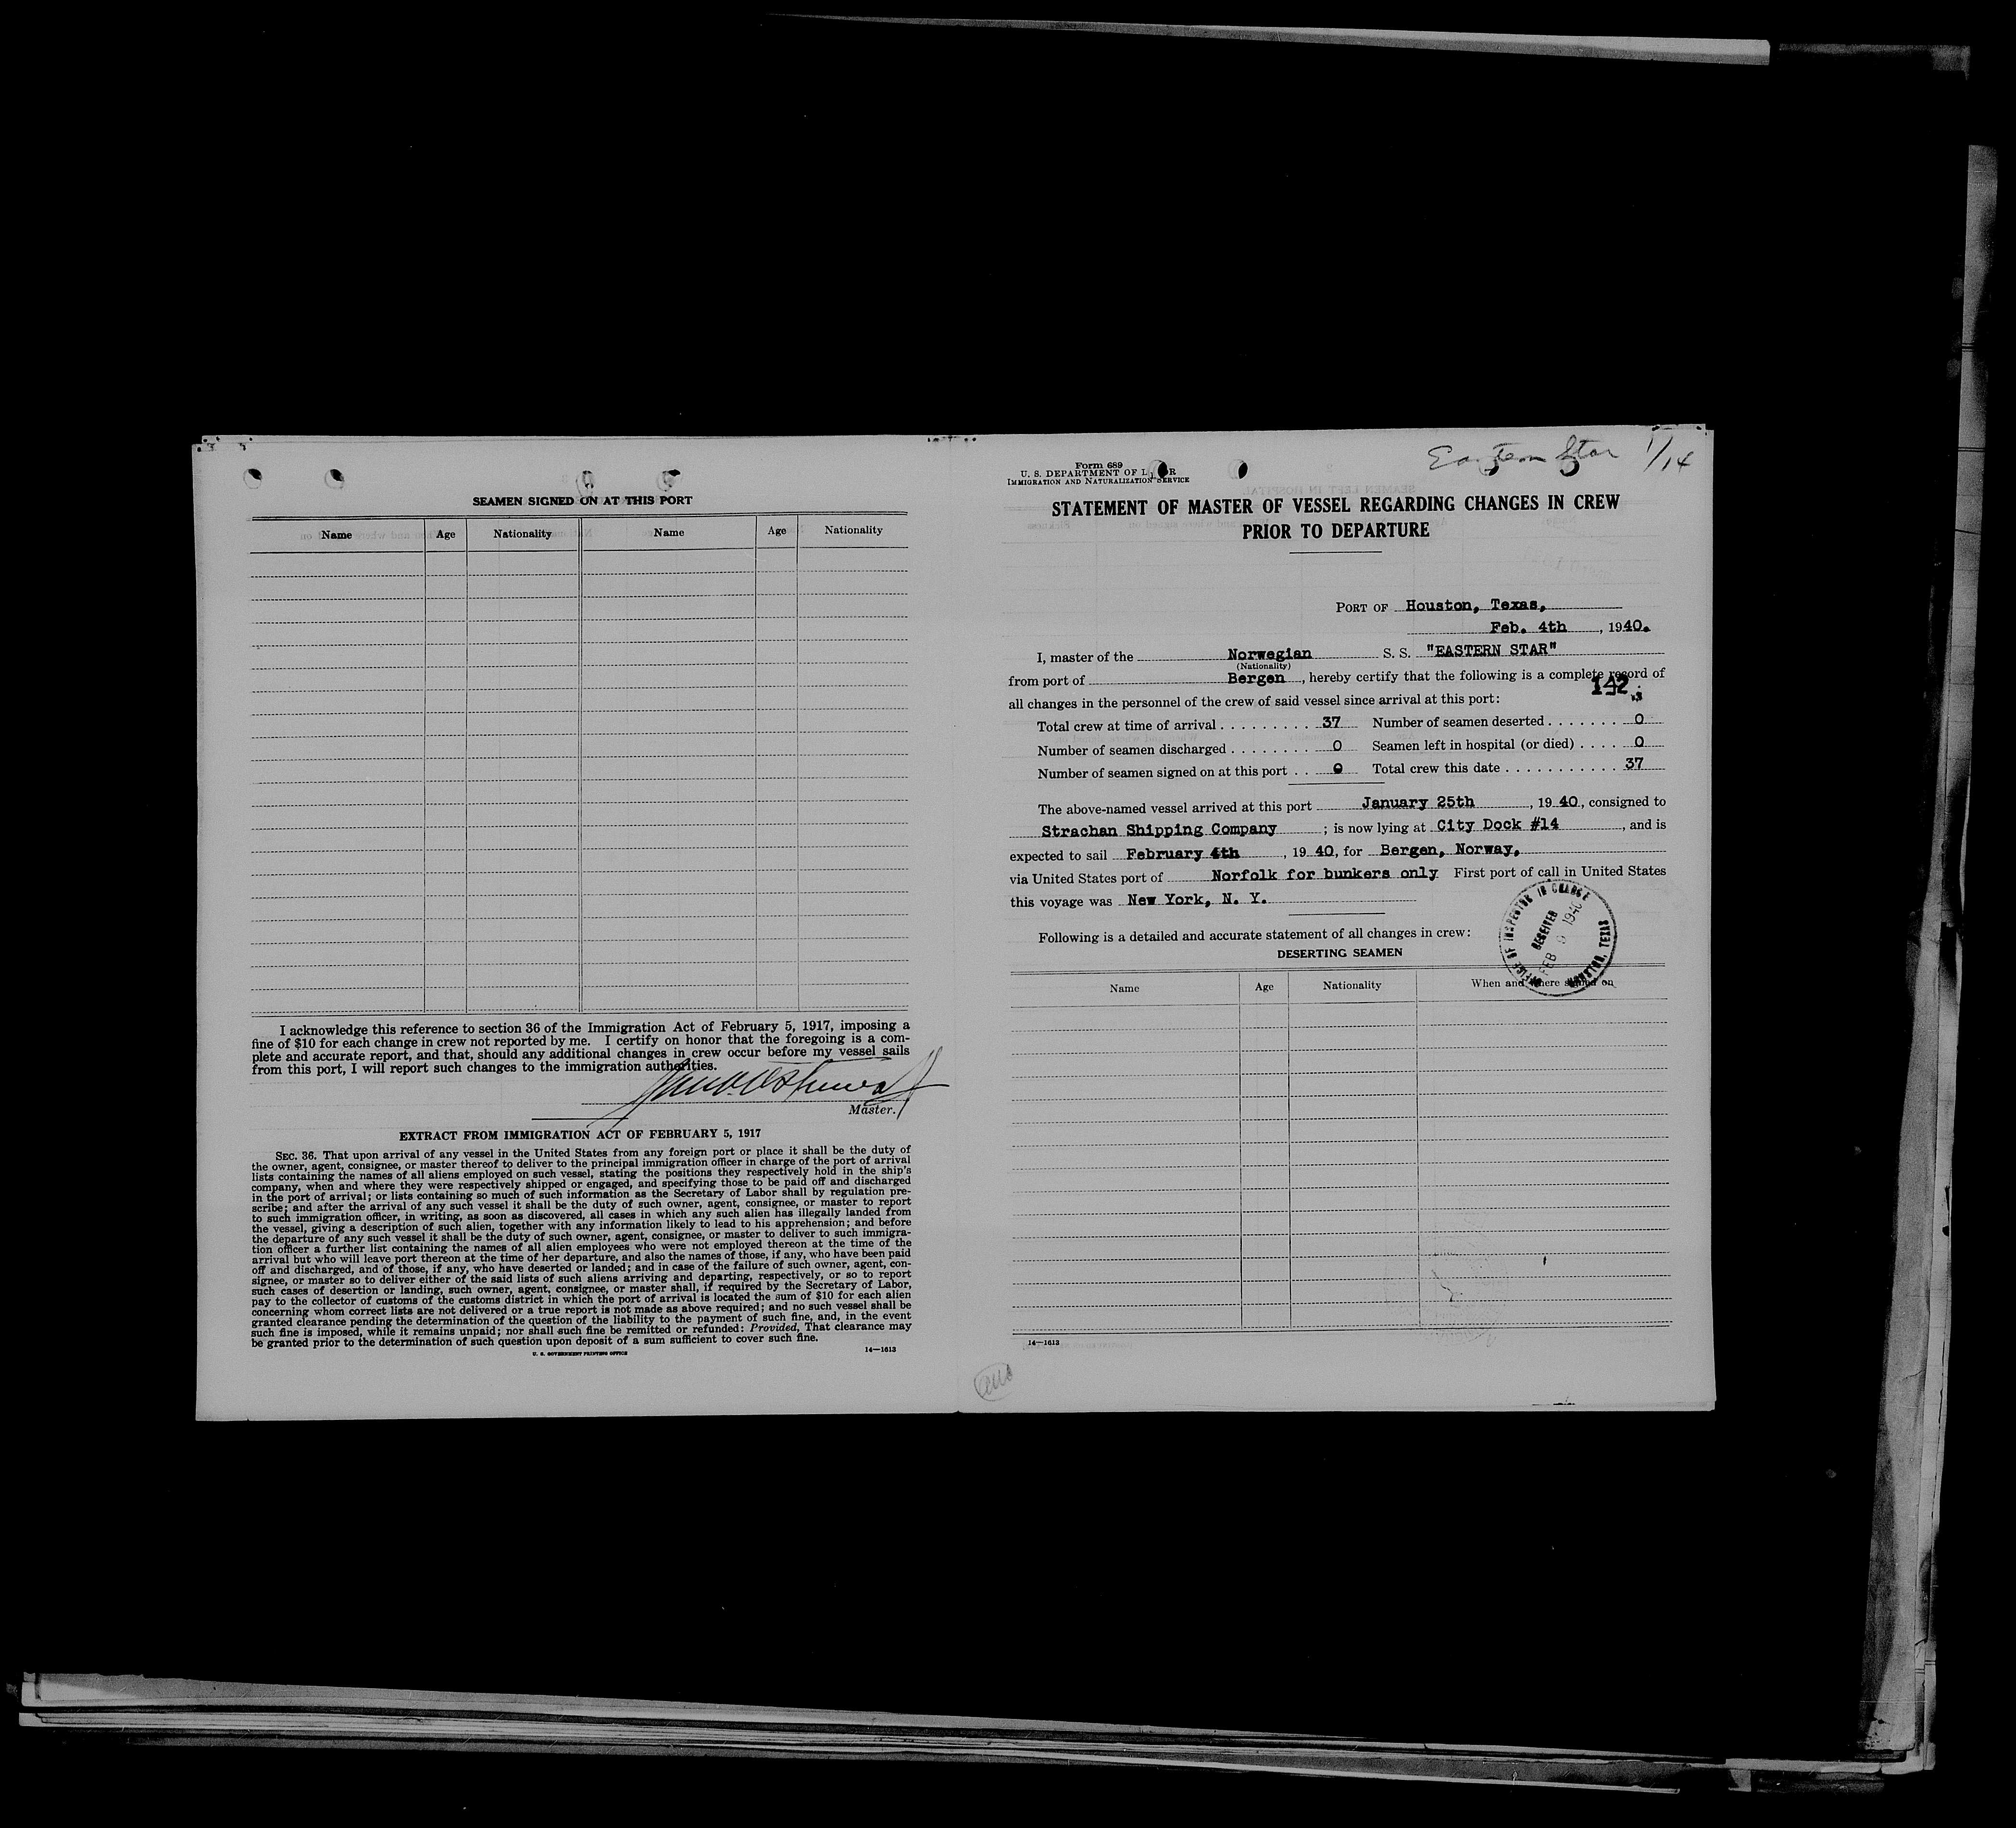 SEAMEN SIGNED ON AT THIS PORT
Name Age Nationality Name Age Nationality
I acknowledge this reference to section 36 of the Immigration Act of February 5, 1917, imposing a
fine of $10 for each change in crew not reported by me. I certify on honor that the foregoing is a com-
plete and accurate report, and that, should any additional changes in crew occur before my vessel sails
from this port, I will report such changes to the immigration authorities.
Master.
EXTRACT FROM IMMIGRATION ACT OF FEBRUARY 5, 1917
SEC. 36. That upon arrival of any vessel in the United States from any foreign port or place it shall be the duty of
the owner, agent, consignee, or master thereof to deliver to the principal immigration officer in charge of the port of arrival
lists containing the names of all aliens employed on such vessel, stating the positions they respectively hold in the ship's
company, when and where they were respectively shipped or engaged, and specifying those to be paid off and discharged
in the port of arrival; or lists containing so much of such information as the Secretary of Labor shall by regulation pre-
scribe; and after the arrival of any such vessel it shall be the duty of such owner, agent, consignee, or master to report
to such immigration officer, in writing, as soon as discovered, all cases in which any such alien has illegally landed from
the vessel, giving a description of such alien, together with any information likely to lead to his apprehension; and before
the departure of any such vessel it shall be the duty of such owner, agent, consignee, or master to deliver to such immigra-
tion officer a further list containing the names of all alien employees who were not employed thereon at the time of the
arrival but who will leave port thereon at the time of her departure, and also the names of those, if any, who have been paid
off and discharged, and of those, if any, who have deserted or landed; and in case of the failure of such owner, agent, con-
signee, or master so to deliver either of the said lists of such aliens arriving and departing, respectively, or so to report
such cases of desertion or landing, such owner, agent, consignee, or master shall, if required by the Secretary of Labor,
pay to the collector of customs of the customs district in which the port of arrival is located the sum of $10 for each alien
concerning whom correct lists are not delivered or a true report is not made as above required; and no such vessel shall be
granted clearance pending the determination of the question of the liability to the payment of such fine, and, in the event
such fine is imposed, while it remains unpaid; nor shall such fine be remitted or refunded: Provided, That clearance may
be granted prior to the determination of such question upon deposit of a sum sufficient to cover such fine.
U. S. GOVERNMENT PRINTING OFFICE 14—1613
Eastern Star 1/14
Form 689
U. S. DEPARTMENT OF LABOR
IMMIGRATION AND NATURALIZATION SERVICE
STATEMENT OF MASTER OF VESSEL REGARDING CHANGES IN CREW
PRIOR TO DEPARTURE
PORT OF Houston, Texas,
Feb. 4th, 1940.
I, master of the Norwegian S. S. "EASTERN STAR"
(Nationality)
from port of Bergen, hereby certify that the following is a complete record of
142
all changes in the personnel of the crew of said vessel since arrival at this port:
Total crew at time of arrival . . . . . . . . . 37 Number of seamen deserted . . . . . . . 0
Number of seamen discharged . . . . . . . . 0 Seamen left in hospital (or died) . . . . 0
Number of seamen signed on at this port . . 0 Total crew this date . . . . . . . . . . . 37
The above-named vessel arrived at this port January 25th, 1940, consigned to
Strachan Shipping Company; is now lying at City Dock #14, and is
expected to sail February 4th, 1940, for Bergen, Norway,
via United States port of Norfolk for bunkers only First port of call in United States
this voyage was New York, N. Y.
OFFICE OF INSPECTOR IN CHARGE
RECEIVED
FEB 9 1940
HOUSTON, TEXAS
Following is a detailed and accurate statement of all changes in crew:
DESERTING SEAMEN
Name Age Nationality When and where signed on
14—1613